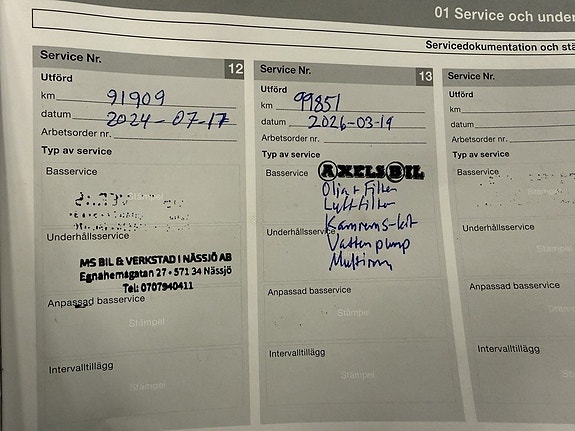 01 Service och under
Servicedokumentation och stä
Service Nr. 12
Utförd
km 91909
datum 2024-07-17
Arbetsorder nr.
Typ av service
Basservice
Stämpel
Underhållsservice
MS BIL & VERKSTAD I NÄSSJÖ AB
Egnahemsgatan 27 • 571 34 Nässjö
Tel: 0707940411
Anpassad basservice
Stämpel
Intervalltillägg
Stämpel
Service Nr. 13
Utförd
km 99851
datum 2026-03-19
Arbetsorder nr.
Typ av service
Basservice AXELS BIL
Olja + Filter
Luftfilter
Kamrems-kit
Underhållsservice
Vattenpump
Multirem
Anpassad basservice
Stämpel
Intervalltillägg
Stämpel
Service Nr.
Utförd
km
datum
Arbetsorder nr.
Typ av service
Basservice
Underhållsservice
Stämpel
Anpassad basservice
Intervalltillägg